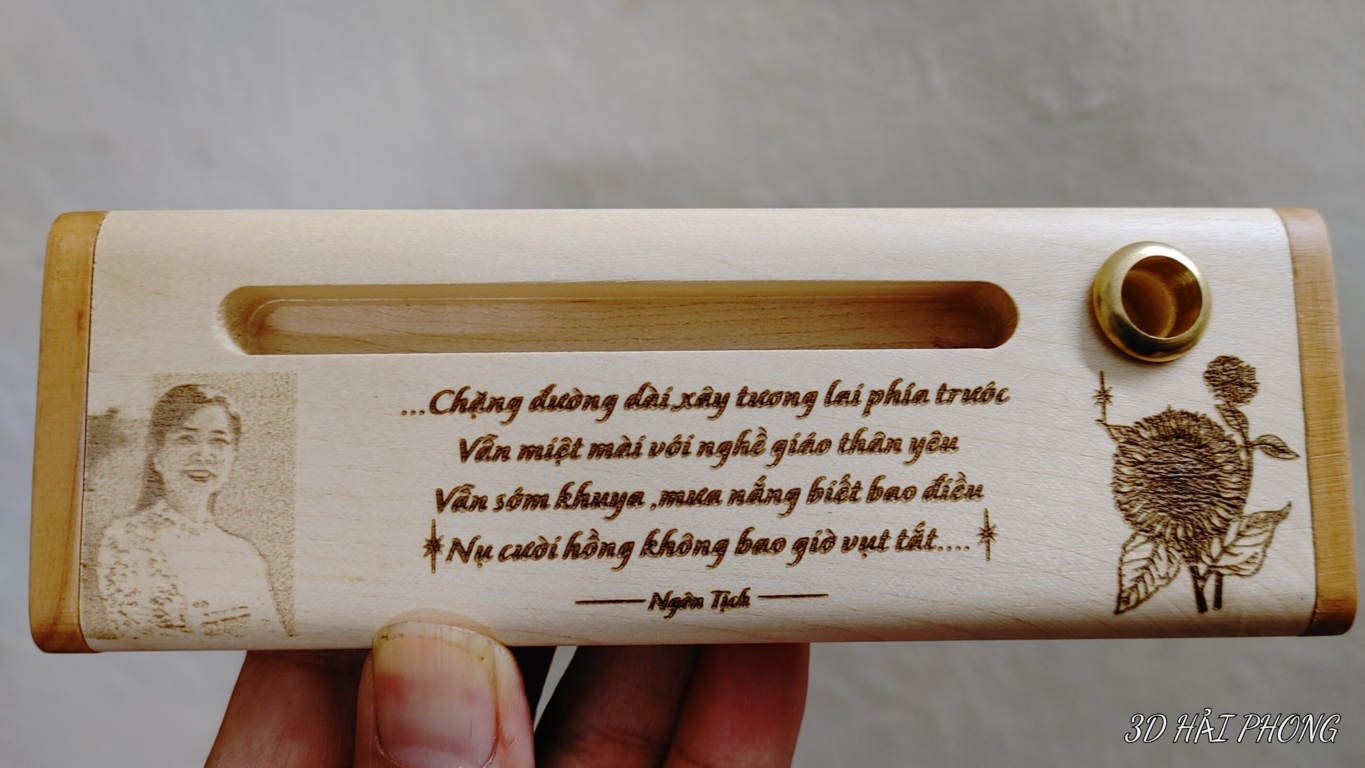 ...Chặng đường dài xây tương lai phía trước
Vẫn miệt mài với nghề giáo thân yêu
Vẫn sớm khuya ,mưa nắng biết bao điều
Nụ cười hồng không bao giờ vụt tắt....
Ngân Tịch
3D HẢI PHONG